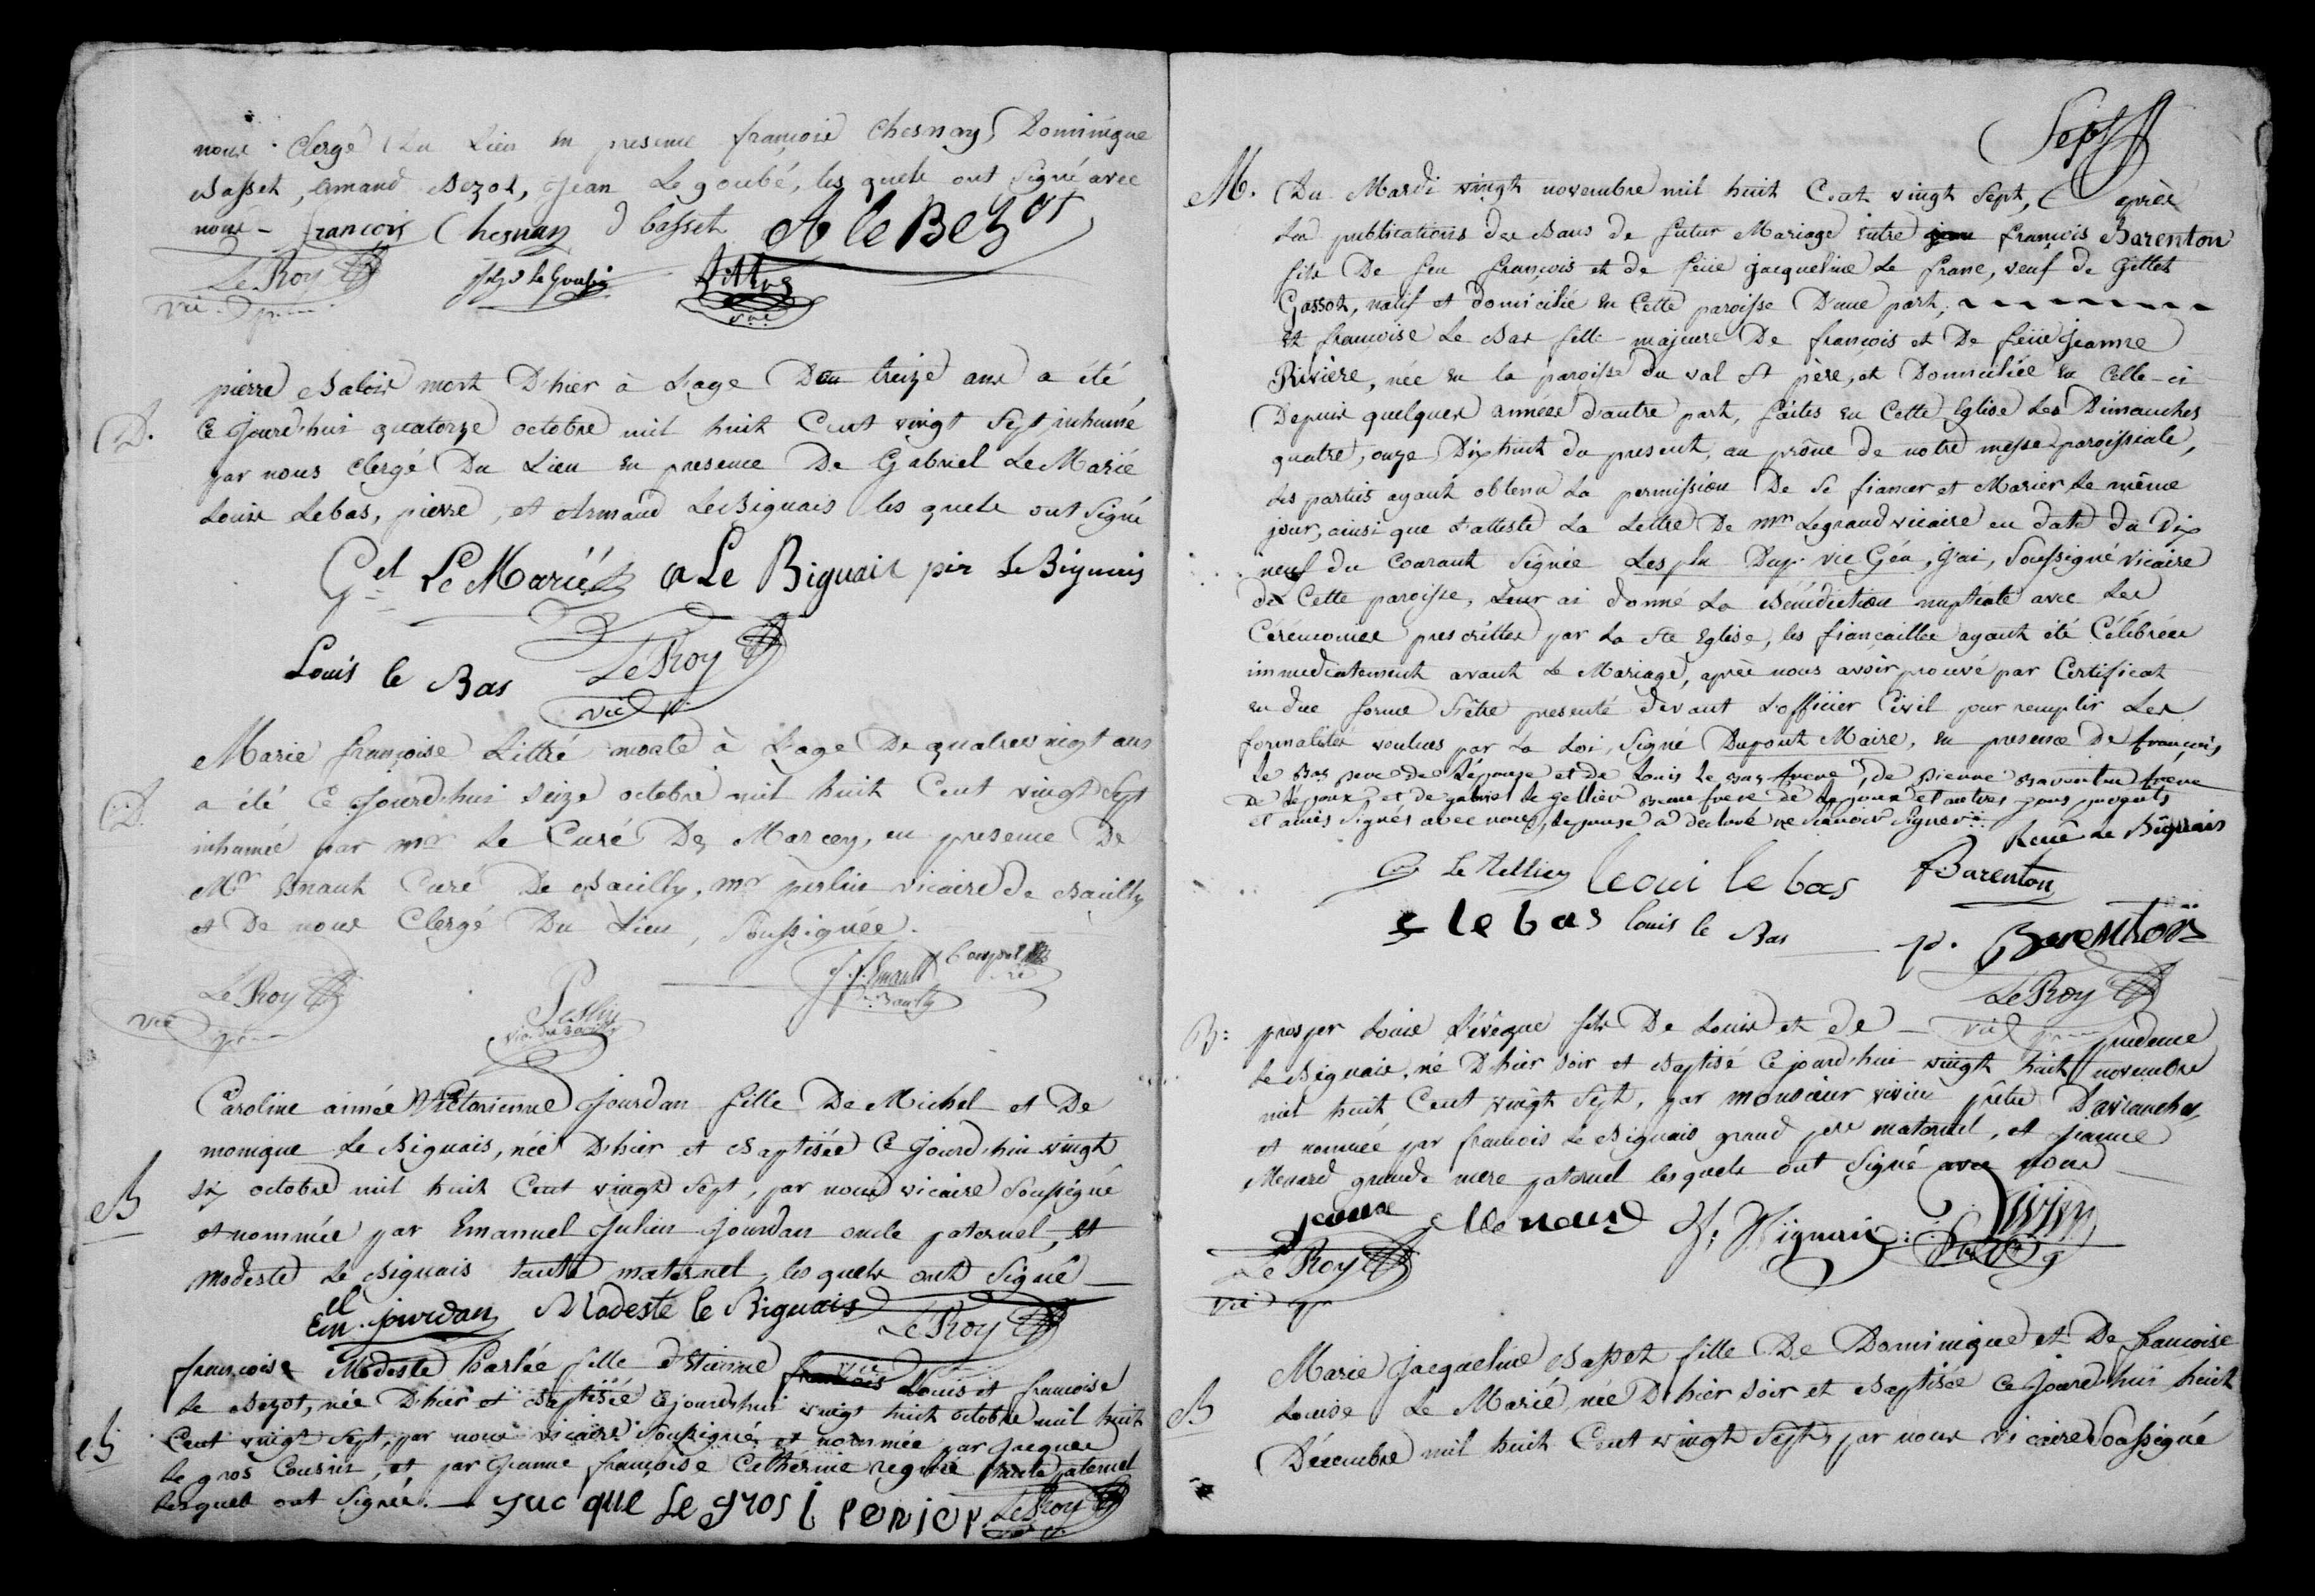 nous Clergé Du Lieu en presence françois Chesnay, Dominique
Basset, Amand Bezot, Jean Le goubé, les quels ont signé avec
nous - francois Chesnay d basset A le Bezot
Le Roy
vic
pierre mort D'hier à L'age De treize ans a été
D. Ce Jourd'hui quatorze octobre mil huit Cent vingt Sept inhumé
par nous Clergé Du Lieu en presence De Gabriel Le Marié
Louis Lebas, pierre, et Armand Le Biguais les quels ont Signé
Gel Le Marié A Le Biguais pier Le Biguais
Louis le Bas Le Roy
vic
Marie françoise Littré morte à L'age De quatrevingt ans
D. a été Ce Jourd'hui Seize octobre mil huit Cent vingt Sept
inhumée par mr Le Curé De Marcey, en presence De
Mr Enault Curé De Bacilly, mr perlin vicaire de Bacilly
et De nous Clergé Du Lieu, Soussignée.
Le Roy
vic
Caroline aimée Victorienne Jourdan fille De Michel et De
monique Le Biguais, née D'hier et Baptisée Ce Jourd'hui vingt
B six octobre mil huit Cent vingt Sept, par nous vicaire Soussigné
et nommée par Emanuel Julien Jourdan oncle paternel, et
Modeste Le Biguais tante maternel, les quels ont Signé
Em. jourdan Modeste le Biguais Le Roy
vic
françoise Modeste fille d'Etienne Louis et françoise
Le Bezot, née D'hier et Baptisée Ce jourd'hui vingt huit octobre mil huit
B Cent vingt Sept, par nous vicaire Soussigné et nommée par Jacques
Le gros Cousin, et par Jeanne françoise Catherine tante paternel
lesquels ont Signé. - jacque Le gros Le Roy
Sept
M. Du Mardi vingt novembre mil huit Cent vingt Sept, après
Les publications des Bans de futur Mariage entre françois Barenton
fils De feu françois et de feüe jacqueline Le franc, veuf de
Gassot, natif et domicilié en Cette paroisse D'une part,
et françoise Le Bas fille majeure De françois et De feüe Jeanne
Rivière, née en la paroisse du val St père, et Domiciliée en Celle-ci
Depuis quelques années d'autre part, faites en Cette Eglise Les Dimanches
quatre, onze Dixhuit du present, au prône de notre messe paroissiale,
Les parties ayant obtenu La permission De Se fiancer et Marier Le même
jour, ainsi que L'atteste La Lettre De mr Legrand vicaire en date du Dix
neuf du Courant Signée vic Gén, j'ai, Soussigné vicaire
de Cette paroisse, Leur ai donné La Bénédiction nuptiale avec Les
Cérémonies prescrittes par La Ste Eglise, les fiançailles ayant été Célébrées
immediatement avant Le Mariage, après nous avoir prouvé par Certificat
en due forme S'être presenté devant L'officier Civil pour remplir Les
formalités voulues par La Loi, Signé Dupont Maire, en presence De françois
Le Bas pere de L'épouse et De Louis Le Bas frere, de pierre Barenton frere
De L'epoux, et de gabriel Le tellier Beau frere de L'epoux et autres parents
et amis Signés avec nous, L'epouse a déclaré ne Scavoir Signer
René Le Biguais
G Le Tellier Leoui le bas F Barenton
F le bas Louis le Bas p. Barenton
Le Roy
vic
B: prosper Louis L'évêque fils De Louis et de prudence
Le Biguais, né D'hier Soir et Baptisé Ce jourd'hui vingt huit novembre
mil huit Cent vingt Sept, par monsieur vivien prêtre D'avranches,
et nommé par françois Le Biguais grand pere maternel, et jeanne
Menard grande mere paternel lesquels ont Signé avec nous
jeanne Menard Vivien
Le Roy
vic
Marie Jacqueline Basset fille De Dominique et De françoise
B Louise Le Marié, née D'hier Soir et Baptisée Ce Jourd'hui huit
Décembre mil huit Cent vingt Sept, par nous vicaire Soussigné